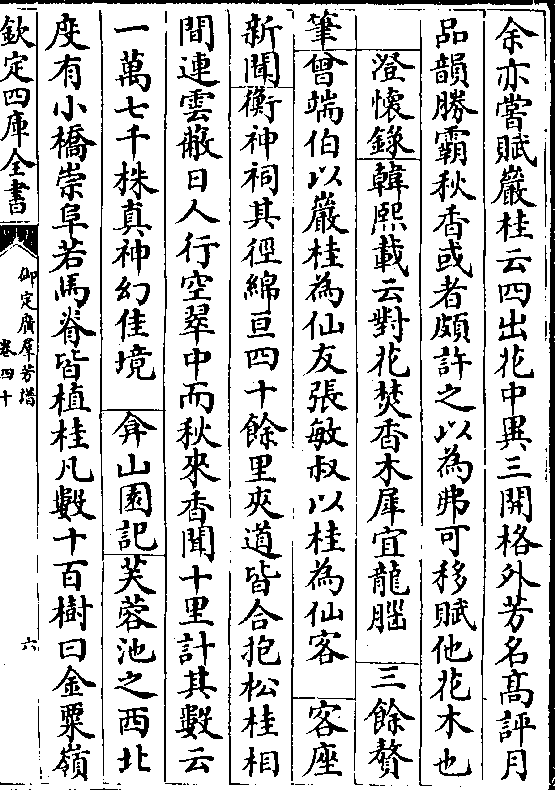 余亦嘗賦巖桂云四出花中異三開格外芳名髙評月
品韻勝霸秋香或者頗許之以為弗可移賦他花木也
澄懷錄韓熙載云對花焚香木犀宜龍腦 三餘贅
筆曾端伯以巖桂為仙友張敏叔以桂為仙客 客座
新聞衡神祠其徑綿亘四十餘里夾道皆合抱松桂相
間連雲蔽日人行空翠中而秋來香聞十里計其數云
一萬七千株真神幻佳境 弇山園記芙蓉池之西北
度有小橋崇阜若馬脊皆植桂凡數十百樹曰金粟嶺
欽定四庫全書
御定廣羣芳譜
卷四十
六